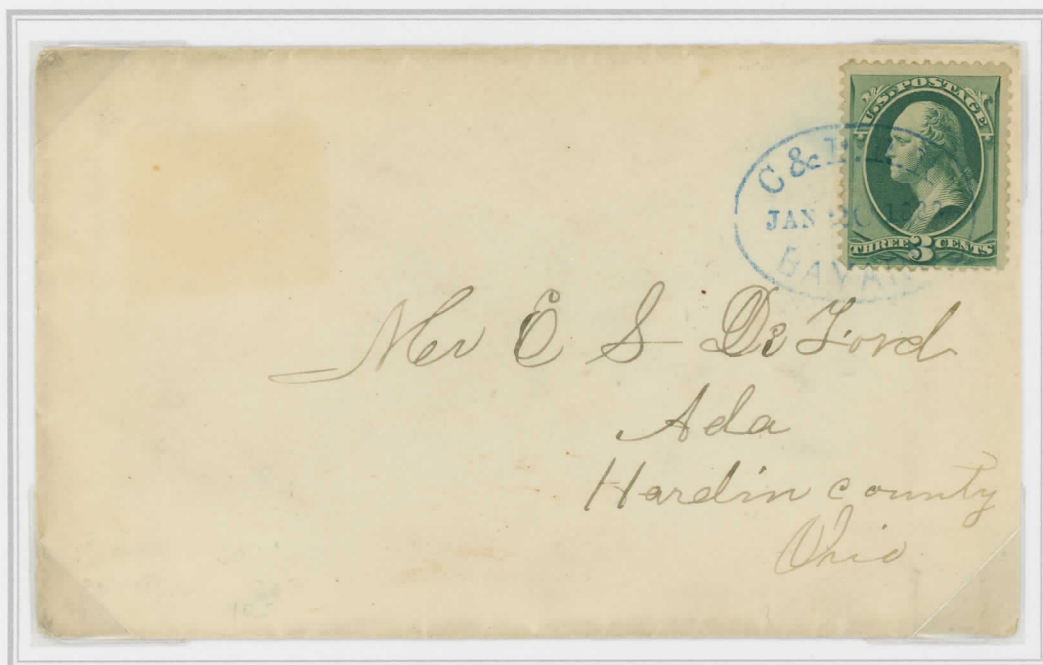 U.S. POSTAGE
THREE 3 CENTS
C &
JAN
Mr E S DeFord
Ada
Hardin county
Ohio